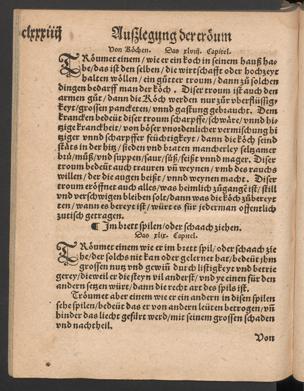 clxxxiiij Außlegung der tröum
Von Köchen. Das xlviij. Capitel.
TRöumet einem / wie er ein koch in seinem hauß ha-
be / das ist den selben / die wirtschafft oder hochzeyt
halten wöllen / ein gůtter traum / dann zů solchen
dingen bedarff man der köch. Diser troum ist auch den
armen gůt / dann die Köch werden nur zůr überflüssig
keyt / grossen pancketen / vnnd gastung gebraucht. Dem
krancken bedeüt diser troum scharpffe / schwäre / vnnd hi-
zige kranckheit / von böser vnordenlicher vermischung hi
ziger vnnd scharpffer feüchtigkeyt / dann die köch seind
stäts in der hiz / sieden vnd braten mancherley selzamer
brů / můß / vnd suppen / saur / süß / feißt vnnd mager. Diser
troum bedeüt auch trauren vñ weynen / vmb des rauchs
willen / der die augen beißt / vnnd weynen macht. Diser
troum eröffnet auch alles / was heimlich zůgangē ist / still
vnd verschwigen bleiben sole / dann was die köch zůbereyt
ten / wann es bereyt ist / würt es für jederman offentlich
zutisch getragen.
¶ Im brett spilen / oder schaach ziehen.
Das xlix. Capitel.
TRöumet einem wie er im brett spil / oder schaach zie
he / der solchs nit kan oder gelernet hat / bedeüt jhm
grossen nutz vnd gewiñ durch listigkeyt vnd betrie
gerey / dieweil er die steyn vil anderst / vnd ye einen für den
andern setzen würt / dann die recht art des spils ist.
Tröumet aber einem wie er ein andern in disen spilen
sehe spilen / bedeüt das er von andern leüten betrogen / vñ
hinder das liecht gefürt werd / mit seinem grossen schaden
vnd nachtheil.
Von